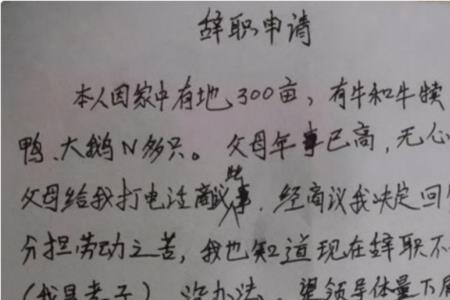 辞职申请
本人因家中有地300亩，有牛和牛犊
鸭、大鹅N多只。父母年事已高，无心
父母给我打电话商议此事，经商议我决定回
分担劳动之苦，我也知道现在辞职不
(我是孝子)没办法，望领导体量下属